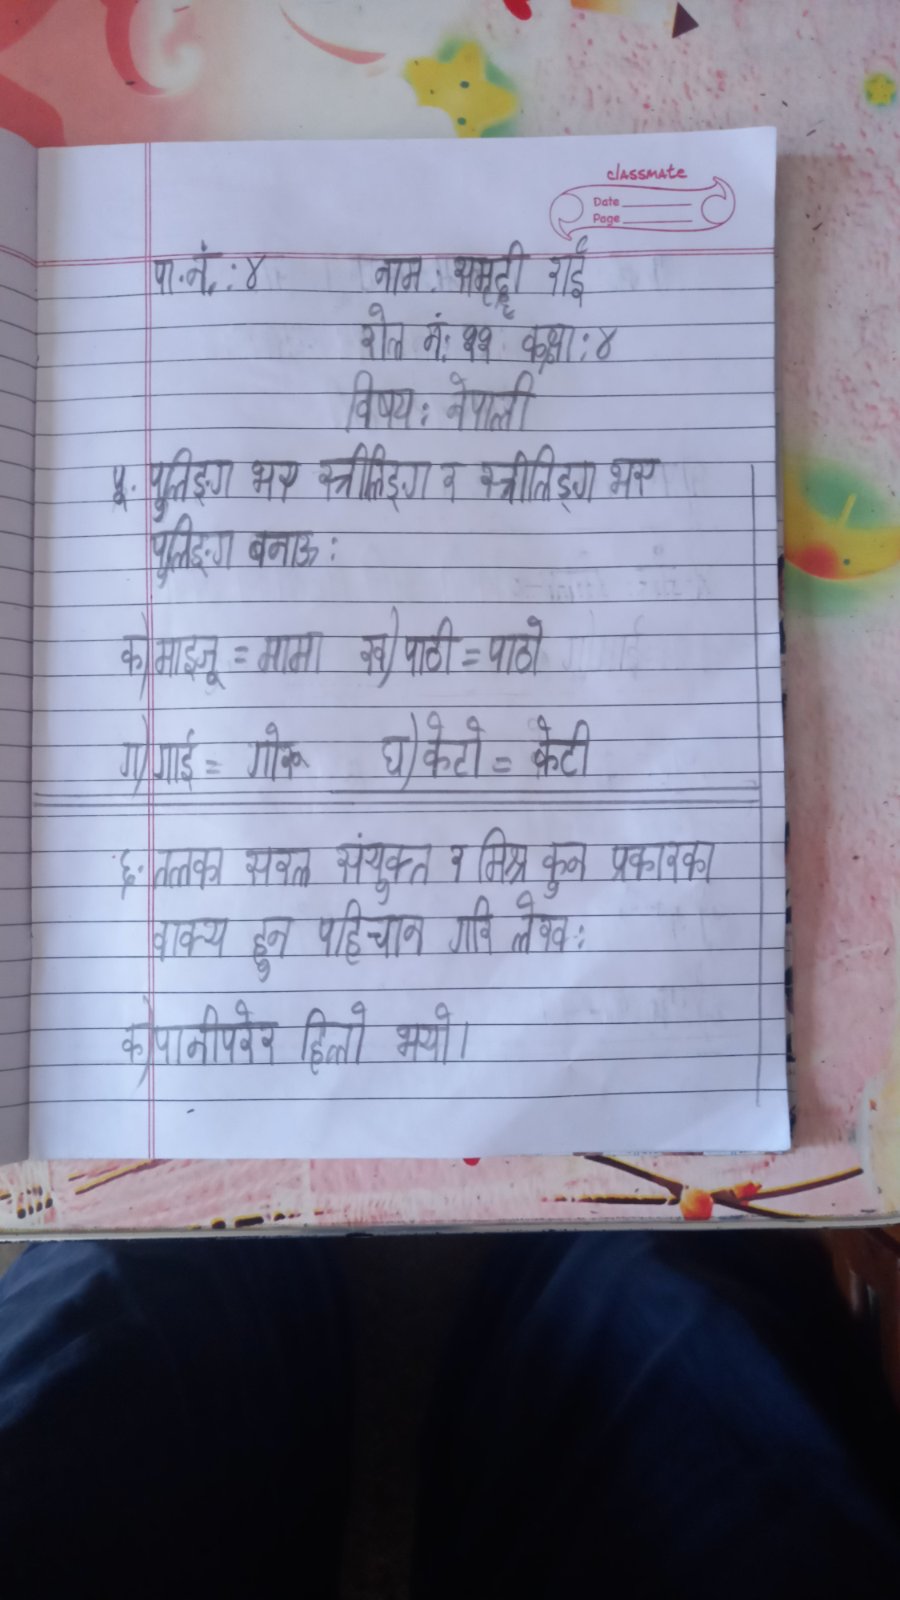 classmate
Date
Page
पा.नं.: ४ नाम: समृद्दी राई
रोल नं: ११ कक्षा: ४
विषय: नेपाली
५. पुलिङ्ग भए स्त्रीलिङ्ग र स्त्रीलिङ्ग भए
पुलिङ्ग बनाऊ:
क) माइजू = मामा ख) पाठी = पाठो
ग) गाई = गोरू घ) केटो = केटी
६. तलका सरल संयुक्त र मिश्र कुन प्रकारका
वाक्य हुन पहिचान गरि लेख:
क) पानीपरेर हिलो भयो।